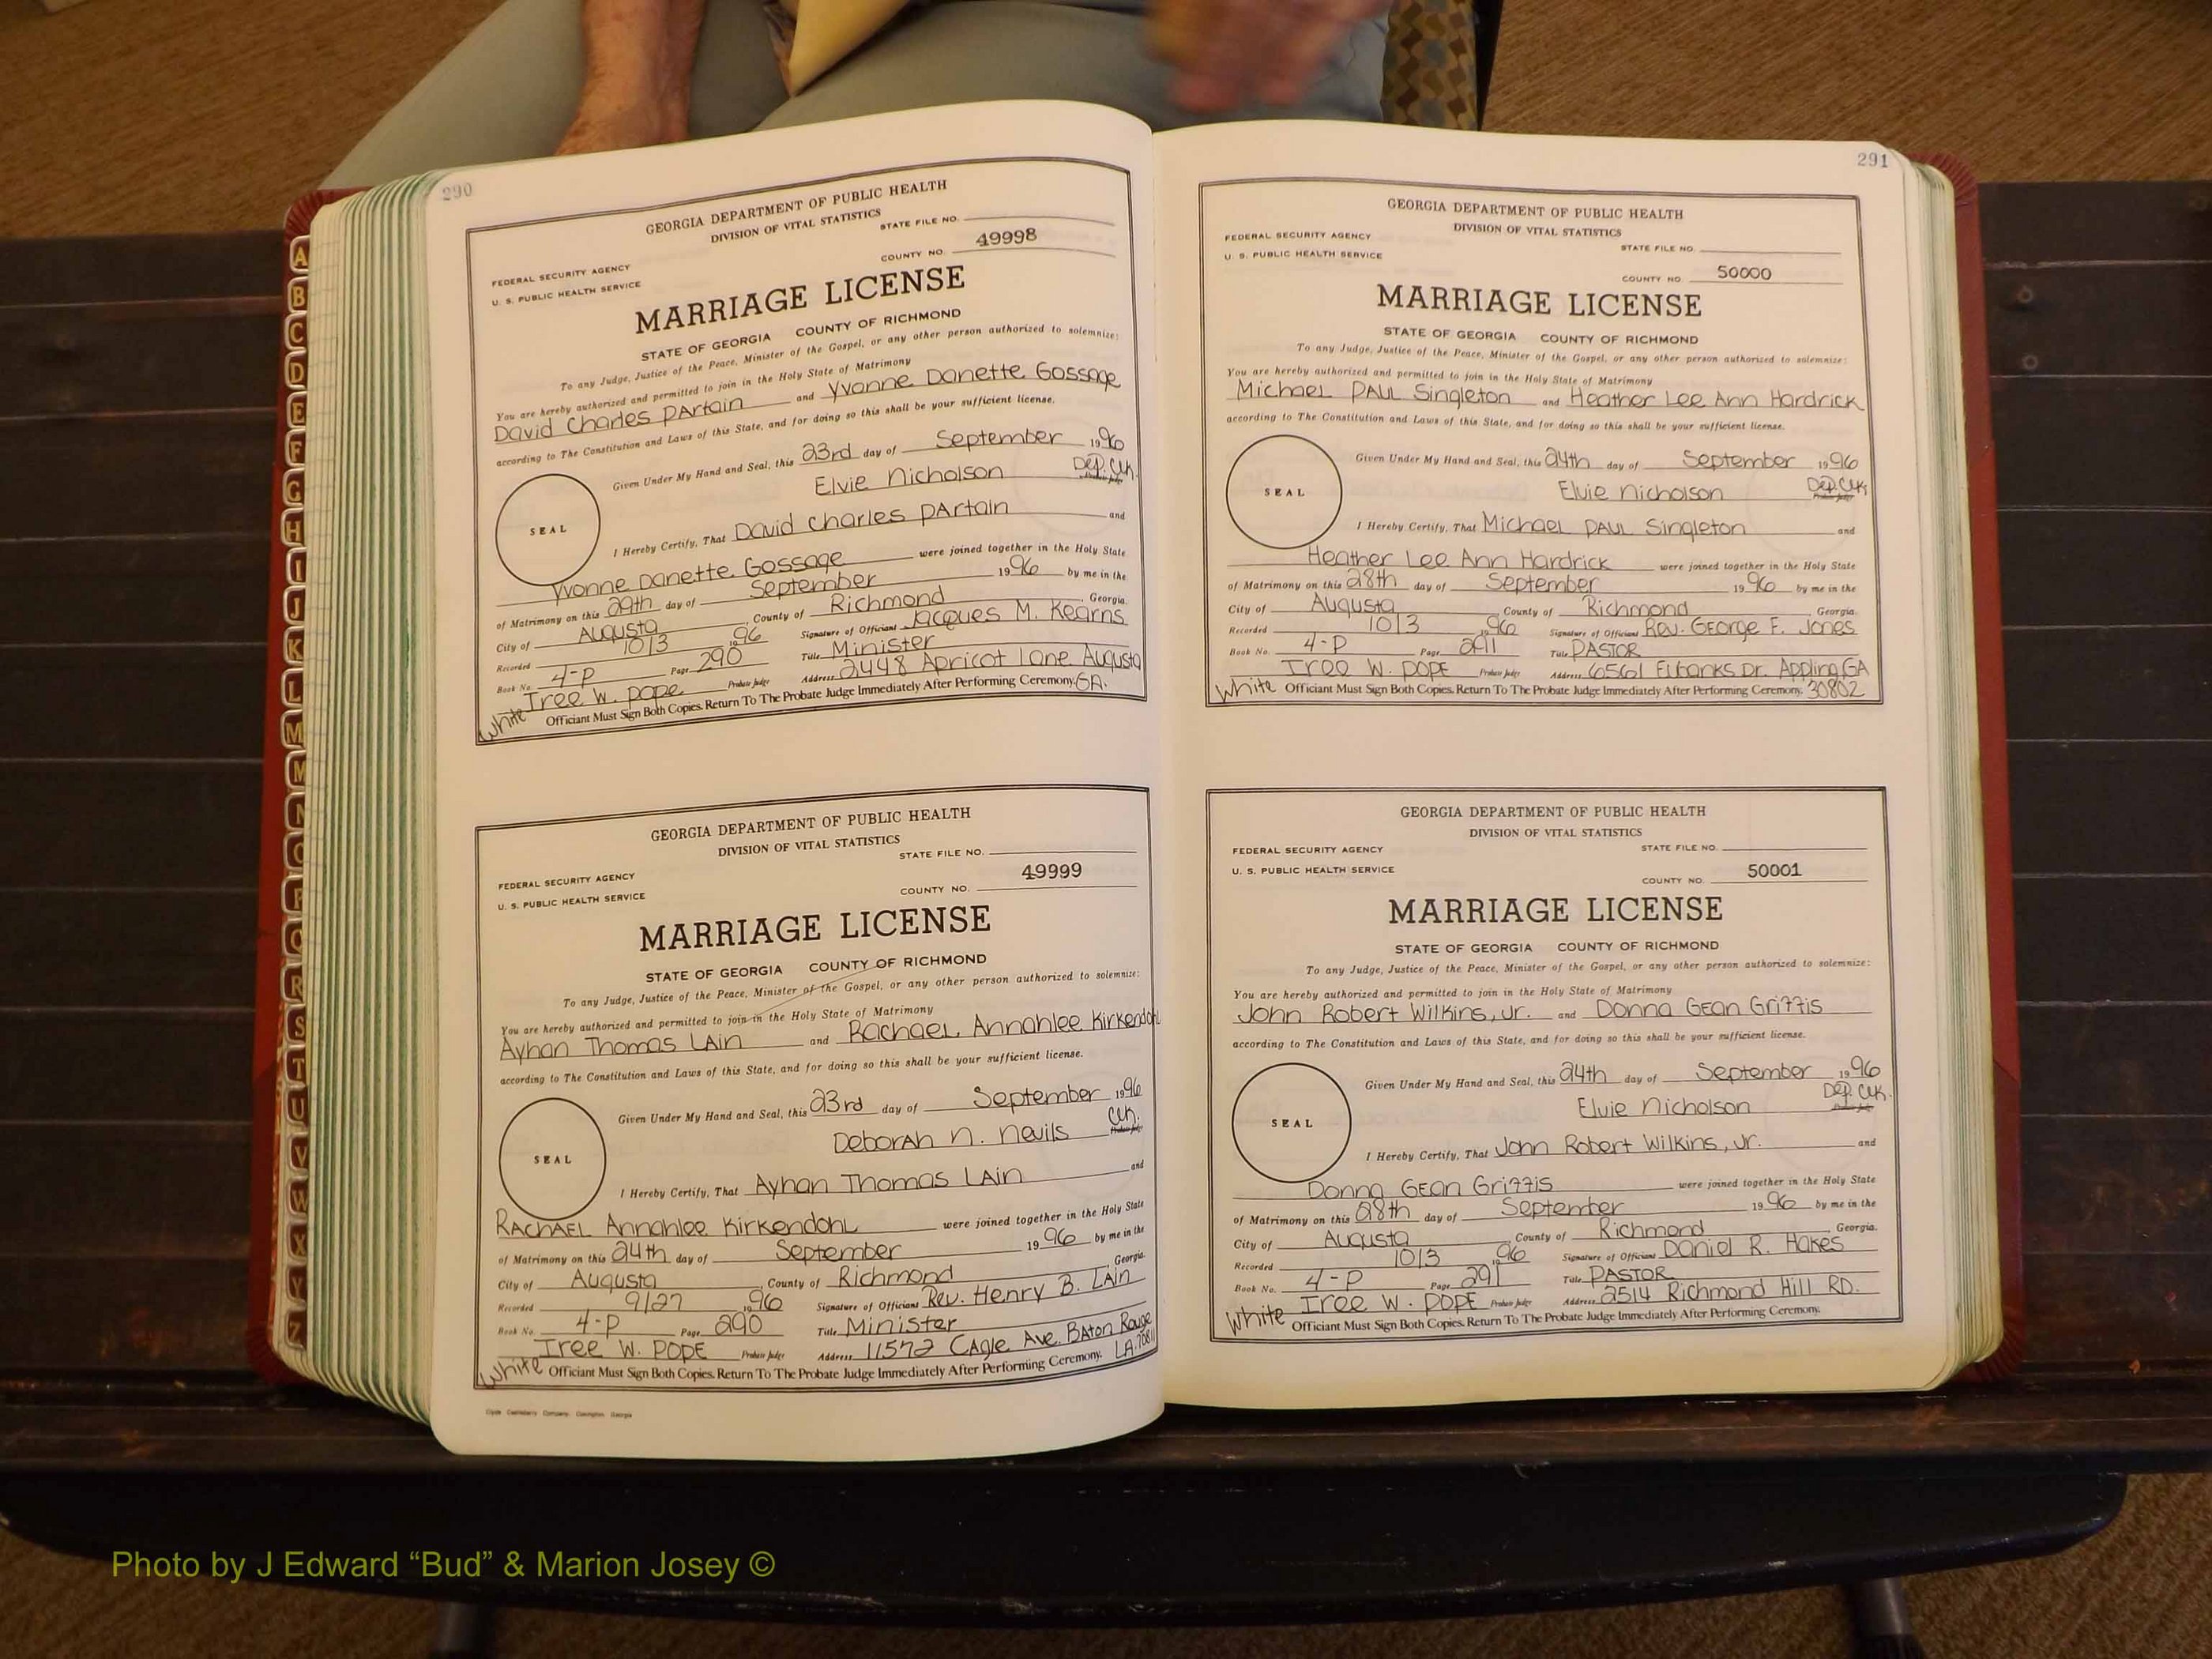 290
GEORGIA DEPARTMENT OF PUBLIC HEALTH
DIVISION OF VITAL STATISTICS
STATE FILE NO.
FEDERAL SECURITY AGENCY
U. S. PUBLIC HEALTH SERVICE
COUNTY NO. 49998
MARRIAGE LICENSE
STATE OF GEORGIA COUNTY OF RICHMOND
To any Judge, Justice of the Peace, Minister of the Gospel, or any other person authorized to solemnize:
You are hereby authorized and permitted to join in the Holy State of Matrimony
David Charles Partain and Yvonne Danette Gossage
according to The Constitution and Laws of this State, and for doing so this shall be your sufficient license.
Given Under My Hand and Seal, this 23rd day of September 1996
Elvie Nicholson Dep. Clk.
SEAL
I Hereby Certify, That David Charles Partain and
Yvonne Danette Gossage were joined together in the Holy State
of Matrimony on this 29th day of September 1996 by me in the
City of Augusta, County of Richmond, Georgia.
Recorded 10/3 1996 Signature of Officiant Jacques M. Kearns
Book No. 4-P Page 290 Title Minister
Iree W. Pope Probate Judge Address 2448 Apricot Lane Augusta
GA.
White Officiant Must Sign Both Copies. Return To The Probate Judge Immediately After Performing Ceremony.
GEORGIA DEPARTMENT OF PUBLIC HEALTH
DIVISION OF VITAL STATISTICS
STATE FILE NO.
FEDERAL SECURITY AGENCY
U. S. PUBLIC HEALTH SERVICE
COUNTY NO. 49999
MARRIAGE LICENSE
STATE OF GEORGIA COUNTY OF RICHMOND
To any Judge, Justice of the Peace, Minister of the Gospel, or any other person authorized to solemnize:
You are hereby authorized and permitted to join in the Holy State of Matrimony
Ayhan Thomas Lain and Rachael Annahlee Kirkendohl
according to The Constitution and Laws of this State, and for doing so this shall be your sufficient license.
Given Under My Hand and Seal, this 23rd day of September 1996
Deborah N. Nevils Clk.
SEAL
I Hereby Certify, That Ayhan Thomas Lain and
Rachael Annahlee Kirkendohl were joined together in the Holy State
of Matrimony on this 24th day of September 1996 by me in the
City of Augusta, County of Richmond, Georgia.
Recorded 9/27 1996 Signature of Officiant Rev. Henry B. Lain
Book No. 4-P Page 290 Title Minister
Iree W. Pope Probate Judge Address 11572 Cagle Ave. Baton Rouge
LA.
White Officiant Must Sign Both Copies. Return To The Probate Judge Immediately After Performing Ceremony.
291
GEORGIA DEPARTMENT OF PUBLIC HEALTH
DIVISION OF VITAL STATISTICS
FEDERAL SECURITY AGENCY
STATE FILE NO.
U. S. PUBLIC HEALTH SERVICE
COUNTY NO. 50000
MARRIAGE LICENSE
STATE OF GEORGIA COUNTY OF RICHMOND
To any Judge, Justice of the Peace, Minister of the Gospel, or any other person authorized to solemnize:
You are hereby authorized and permitted to join in the Holy State of Matrimony
Michael Paul Singleton and Heather Lee Ann Hardrick
according to The Constitution and Laws of this State, and for doing so this shall be your sufficient license.
Given Under My Hand and Seal, this 24th day of September 1996
Elvie Nicholson Dep. Clk.
SEAL
I Hereby Certify, That Michael Paul Singleton and
Heather Lee Ann Hardrick were joined together in the Holy State
of Matrimony on this 28th day of September 1996 by me in the
City of Augusta, County of Richmond, Georgia.
Recorded 10/3 1996 Signature of Officiant Rev. George F. Jones
Book No. 4-P Page 291 Title Pastor
Iree W. Pope Probate Judge Address 6561 Eubanks Dr. Appling, GA
White Officiant Must Sign Both Copies. Return To The Probate Judge Immediately After Performing Ceremony. 30802
GEORGIA DEPARTMENT OF PUBLIC HEALTH
DIVISION OF VITAL STATISTICS
FEDERAL SECURITY AGENCY
STATE FILE NO.
U. S. PUBLIC HEALTH SERVICE
COUNTY NO. 50001
MARRIAGE LICENSE
STATE OF GEORGIA COUNTY OF RICHMOND
To any Judge, Justice of the Peace, Minister of the Gospel, or any other person authorized to solemnize:
You are hereby authorized and permitted to join in the Holy State of Matrimony
John Robert Wilkins, Jr. and Donna Gean Griffis
according to The Constitution and Laws of this State, and for doing so this shall be your sufficient license.
Given Under My Hand and Seal, this 24th day of September 1996
Elvie Nicholson Dep. Clk.
SEAL
I Hereby Certify, That John Robert Wilkins, Jr. and
Donna Gean Griffis were joined together in the Holy State
of Matrimony on this 28th day of September 1996 by me in the
City of Augusta, County of Richmond, Georgia.
Recorded 10/3 1996 Signature of Officiant Daniel R. Hakes
Book No. 4-P Page 291 Title Pastor
Iree W. Pope Probate Judge Address 2514 Richmond Hill Rd.
White Officiant Must Sign Both Copies. Return To The Probate Judge Immediately After Performing Ceremony.
A
B
C
D
E
F
G
H
I
J
K
L
M
M
N
O
P
Q
R
S
T
U
V
W
X
Y
Z
Photo by J Edward “Bud” & Marion Josey ©